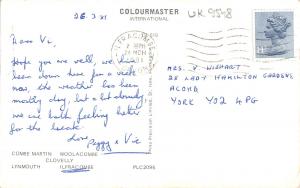 COLOURMASTER
INTERNATIONAL
UK 9548
26.3.81
Dear Vi,
Hope you are well, we have
been down here for a week
now, the weather has been
mostly dry, but a bit cloudy,
we are both feeling better
for the break.
Love
Peggy & Vic
ILFRACOMBE
MRS. V. WISHART
25 LADY HAMILTON GARDENS
ACOMB
YORK YO2 4PG
COMBE MARTIN WOOLACOMBE
CLOVELLY
LYNMOUTH ILFRACOMBE
PLC2096